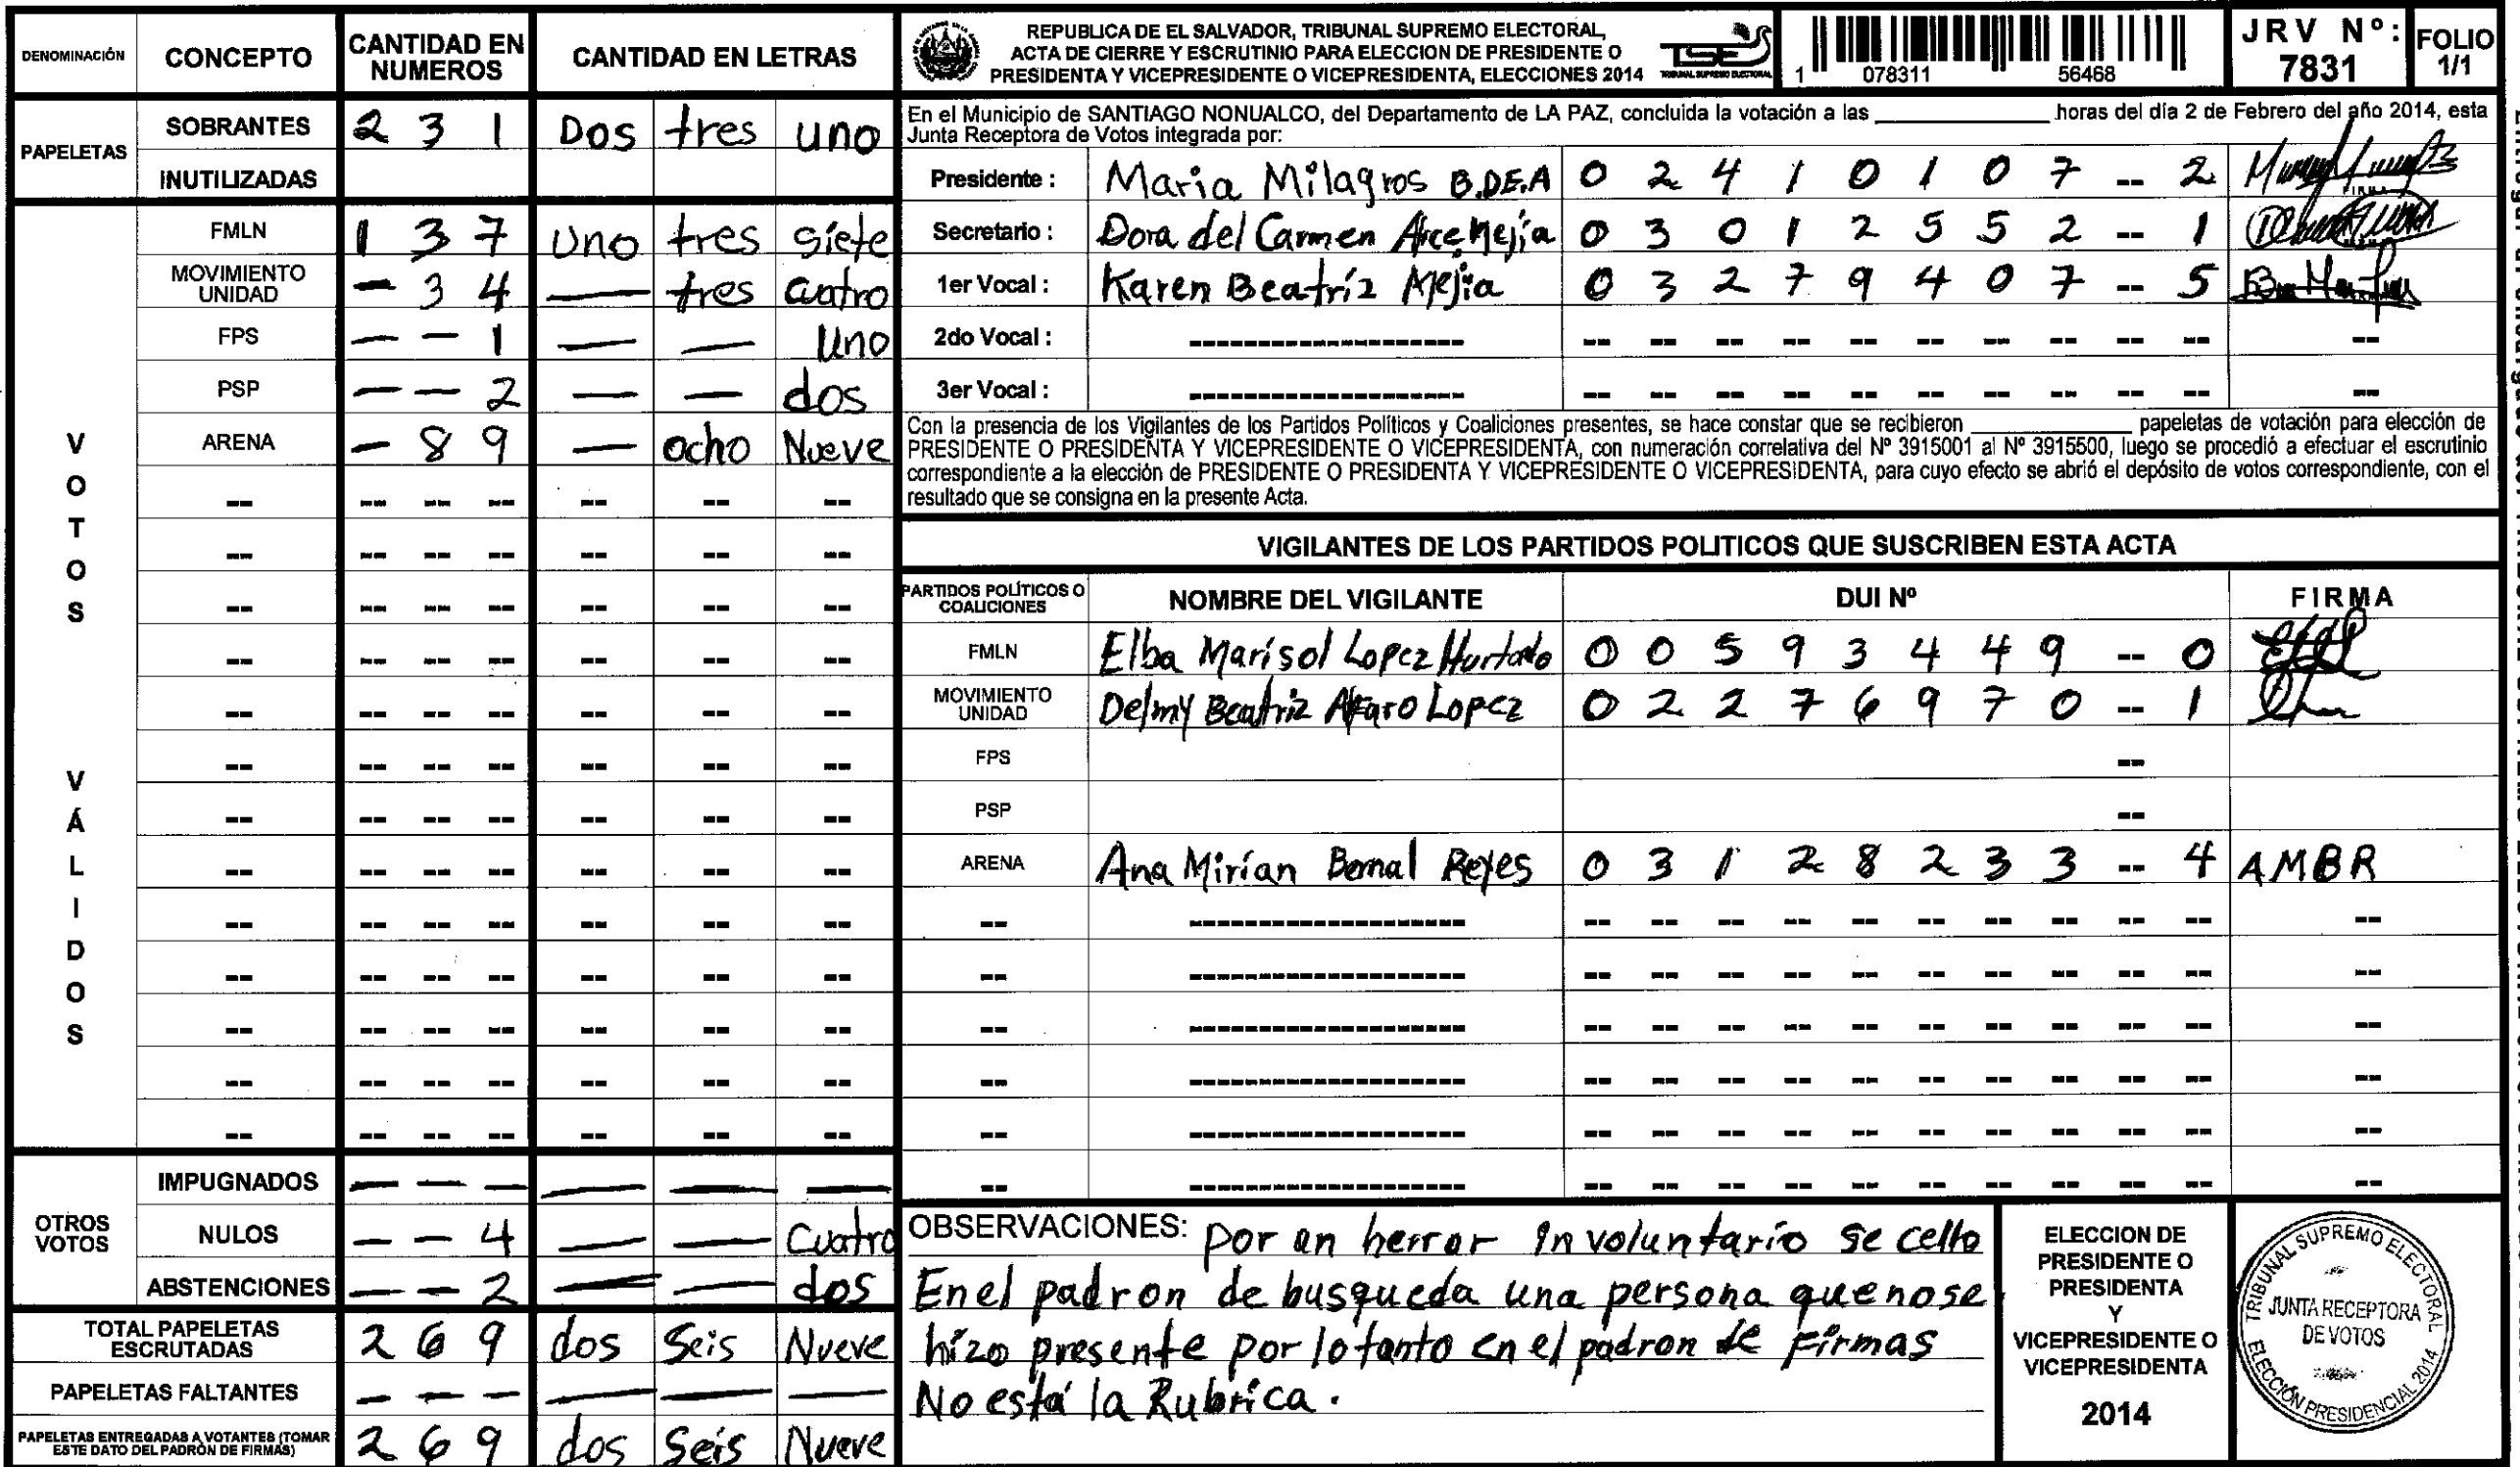 DENOMINACIÓN CONCEPTO CANTIDAD EN NUMEROS CANTIDAD EN LETRAS
PAPELETAS
SOBRANTES 2 3 1 Dos tres uno
INUTILIZADAS
VOTOS VÁLIDOS
FMLN 1 3 7 Uno tres siete
MOVIMIENTO UNIDAD - 3 4 — tres cuatro
FPS - - 1 — — Uno
PSP - - 2 — — dos
ARENA - 8 9 — ocho Nueve
-- -- -- -- -- -- --
-- -- -- -- -- -- --
-- -- -- -- -- -- --
-- -- -- -- -- -- --
-- -- -- -- -- -- --
-- -- -- -- -- -- --
-- -- -- -- -- -- --
-- -- -- -- -- -- --
-- -- -- -- -- -- --
-- -- -- -- -- -- --
-- -- -- -- -- -- --
-- -- -- -- -- -- --
-- -- -- -- -- -- --
OTROS VOTOS
IMPUGNADOS - - - — — —
NULOS - - 4 — — Cuatro
ABSTENCIONES - - 2 — — dos
TOTAL PAPELETAS ESCRUTADAS 2 6 9 dos Seis Nueve
PAPELETAS FALTANTES - - - — — —
PAPELETAS ENTREGADAS A VOTANTES (TOMAR ESTE DATO DEL PADRÓN DE FIRMAS) 2 6 9 dos Seis Nueve
REPUBLICA DE EL SALVADOR, TRIBUNAL SUPREMO ELECTORAL,
ACTA DE CIERRE Y ESCRUTINIO PARA ELECCION DE PRESIDENTE O
PRESIDENTA Y VICEPRESIDENTE O VICEPRESIDENTA, ELECCIONES 2014
TSE
TRIBUNAL SUPREMO ELECTORAL
1 078311 56468
JRV Nº: 7831
FOLIO 1/1
En el Municipio de SANTIAGO NONUALCO, del Departamento de LA PAZ, concluida la votación a las ____ horas del día 2 de Febrero del año 2014, esta
Junta Receptora de Votos integrada por:
Presidente : Maria Milagros B.DE.A 0 2 4 1 0 1 0 7 -- 2
FIRMA
Secretario : Dora del Carmen Arce Mejía 0 3 0 1 2 5 5 2 -- 1
1er Vocal : Karen Beatríz Mejia 0 3 2 7 9 4 0 7 -- 5
2do Vocal : -------------------- -- -- -- -- -- -- -- -- -- -- --
3er Vocal : -------------------- -- -- -- -- -- -- -- -- -- -- --
Con la presencia de los Vigilantes de los Partidos Políticos y Coaliciones presentes, se hace constar que se recibieron ____ papeletas de votación para elección de
PRESIDENTE O PRESIDENTA Y VICEPRESIDENTE O VICEPRESIDENTA, con numeración correlativa del Nº 3915001 al Nº 3915500, luego se procedió a efectuar el escrutinio
correspondiente a la elección de PRESIDENTE O PRESIDENTA Y VICEPRESIDENTE O VICEPRESIDENTA, para cuyo efecto se abrió el depósito de votos correspondiente, con el
resultado que se consigna en la presente Acta.
VIGILANTES DE LOS PARTIDOS POLITICOS QUE SUSCRIBEN ESTA ACTA
PARTIDOS POLÍTICOS O COALICIONES NOMBRE DEL VIGILANTE DUI Nº FIRMA
FMLN Elba Marisol Lopez Hurtado 0 0 5 9 3 4 4 9 -- 0
MOVIMIENTO UNIDAD Delmy Beatriz Alfaro Lopez 0 2 2 7 6 9 7 0 -- 1
FPS --
PSP --
ARENA Ana Mirían Bernal Reyes 0 3 1 2 8 2 3 3 -- 4 AMBR
-- -------------------- -- -- -- -- -- -- -- -- -- -- --
-- -------------------- -- -- -- -- -- -- -- -- -- -- --
-- -------------------- -- -- -- -- -- -- -- -- -- -- --
-- -------------------- -- -- -- -- -- -- -- -- -- -- --
-- -------------------- -- -- -- -- -- -- -- -- -- -- --
-- -------------------- -- -- -- -- -- -- -- -- -- -- --
OBSERVACIONES: por un herror involuntario se cello
En el padron de busqueda una persona que no se
hizo presente por lo tanto en el padron de Firmas
No está la Rubrica.
ELECCION DE
PRESIDENTE O
PRESIDENTA
Y
VICEPRESIDENTE O
VICEPRESIDENTA
2014
TRIBUNAL SUPREMO ELECTORAL
JUNTA RECEPTORA
DE VOTOS
ELECCIÓN PRESIDENCIAL 2014